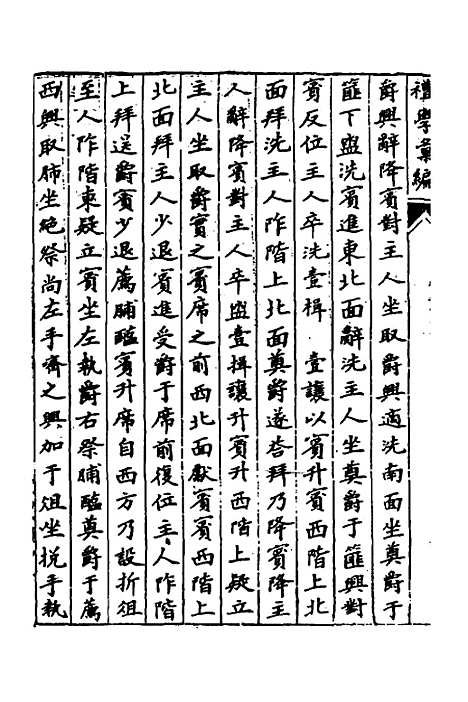 禮學彙編
爵興辭降賓對主人坐取爵興適洗南面坐奠爵于
篚下盥洗賓進東北面辭洗主人坐奠爵于篚興對
賓反位主人卒洗壹揖壹讓以賓升賓西階上北
面拜洗主人阼階上北面奠爵遂答拜乃降賓降主
人辭降賓對主人卒盥壹揖讓升賓升西階上疑立
主人坐取爵實之賓席之前西北面獻賓賓西階上
北面拜主人少退賓進受爵于席前復位主人阼階
上拜送爵賓少退薦脯醢賓升席自西方乃設折俎
主人阼階東疑立賓坐左執爵右祭脯醢奠爵于薦
西興取肺坐絶祭尚左手嚌之興加于俎坐挩手執